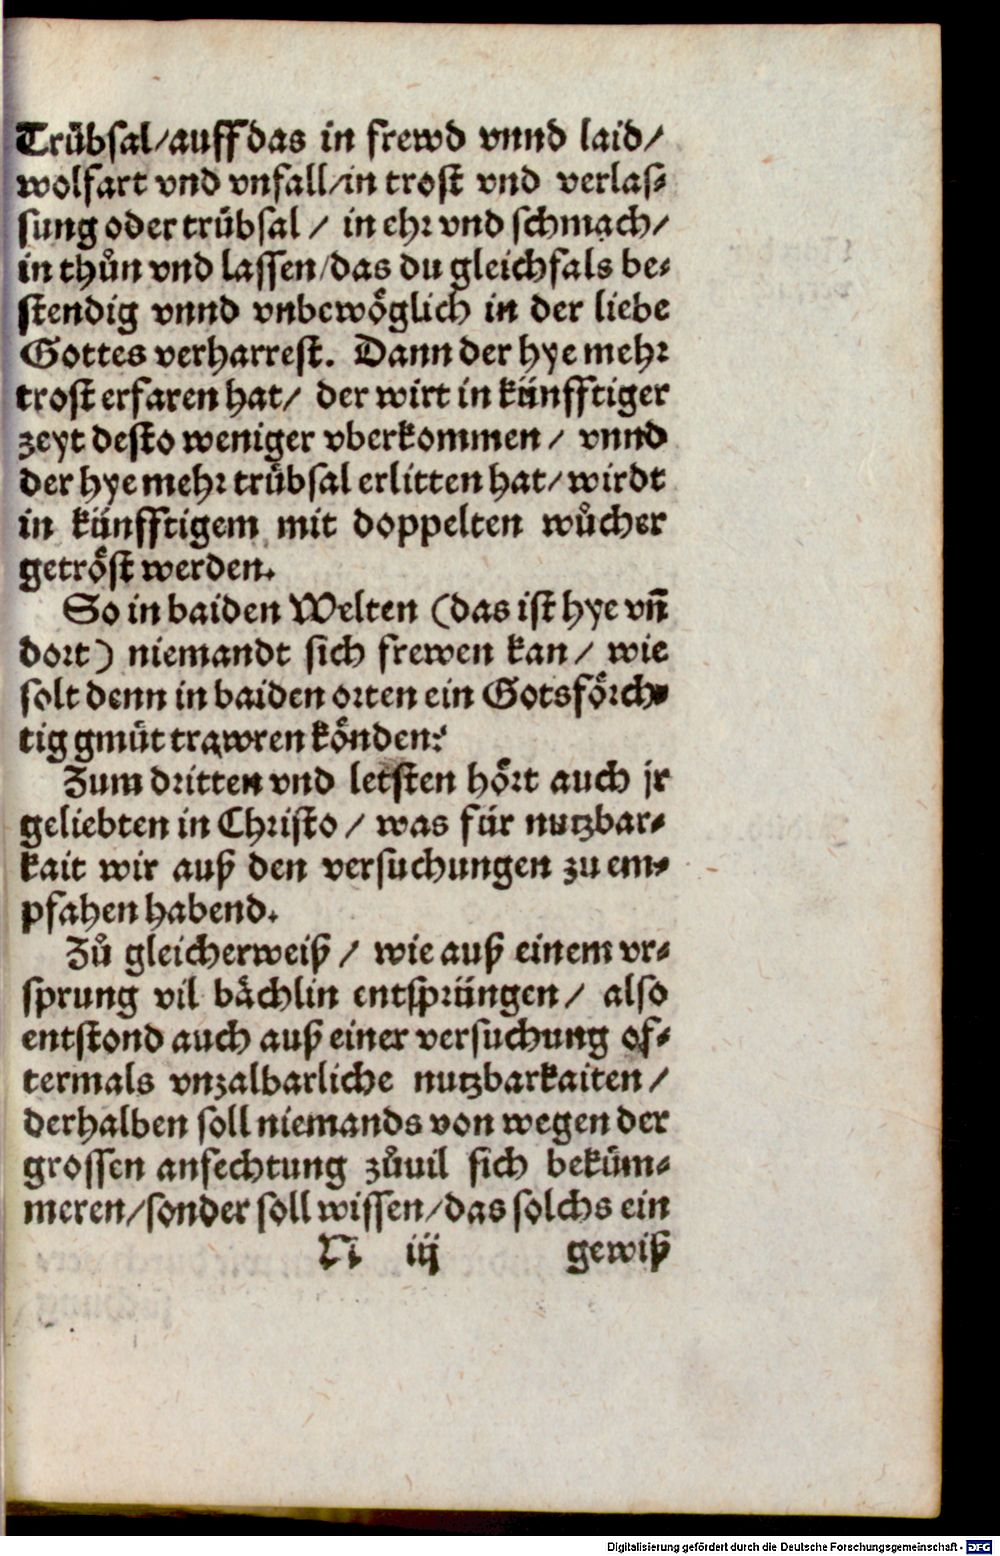 Trübsal/auff das in frewd vnnd laid/
wolfart vnd vnfall/in trost vnd verlas⸗
sung oder trübsal / in ehr vnd schmach/
in thůn vnd lassen/das du gleichfals be⸗
stendig vnnd vnbewöglich in der liebe
Gottes verharrest. Dann der hye mehr
trost erfaren hat/ der wirt in künfftiger
zeyt desto weniger vberkommen / vnnd
der hye mehr trübsal erlitten hat/ wirdt
in künfftigem mit doppelten wůcher
getröst werden.
So in baiden Welten (das ist hye vñ
dort) niemandt sich frewen kan/ wie
solt denn in baiden orten ein Gotsförch⸗
tig gmüt trawren könden?
Zum dritten vnd letsten hört auch jr
geliebten in Christo / was für nutzbar⸗
kait wir auß den versuchungen zu em⸗
pfahen habend.
Zů gleicherweiß / wie auß einem vr⸗
sprung vil bächlin entsprüngen/ also
entstond auch auß einer versuchung of⸗
termals vnzalbarliche nutzbarkaiten /
derhalben soll niemands von wegen der
grossen anfechtung zůuil sich beküm⸗
meren/sonder soll wissen/das solchs ein
N iij gewiß
Digitalisierung gefördert durch die Deutsche Forschungsgemeinschaft - DFG